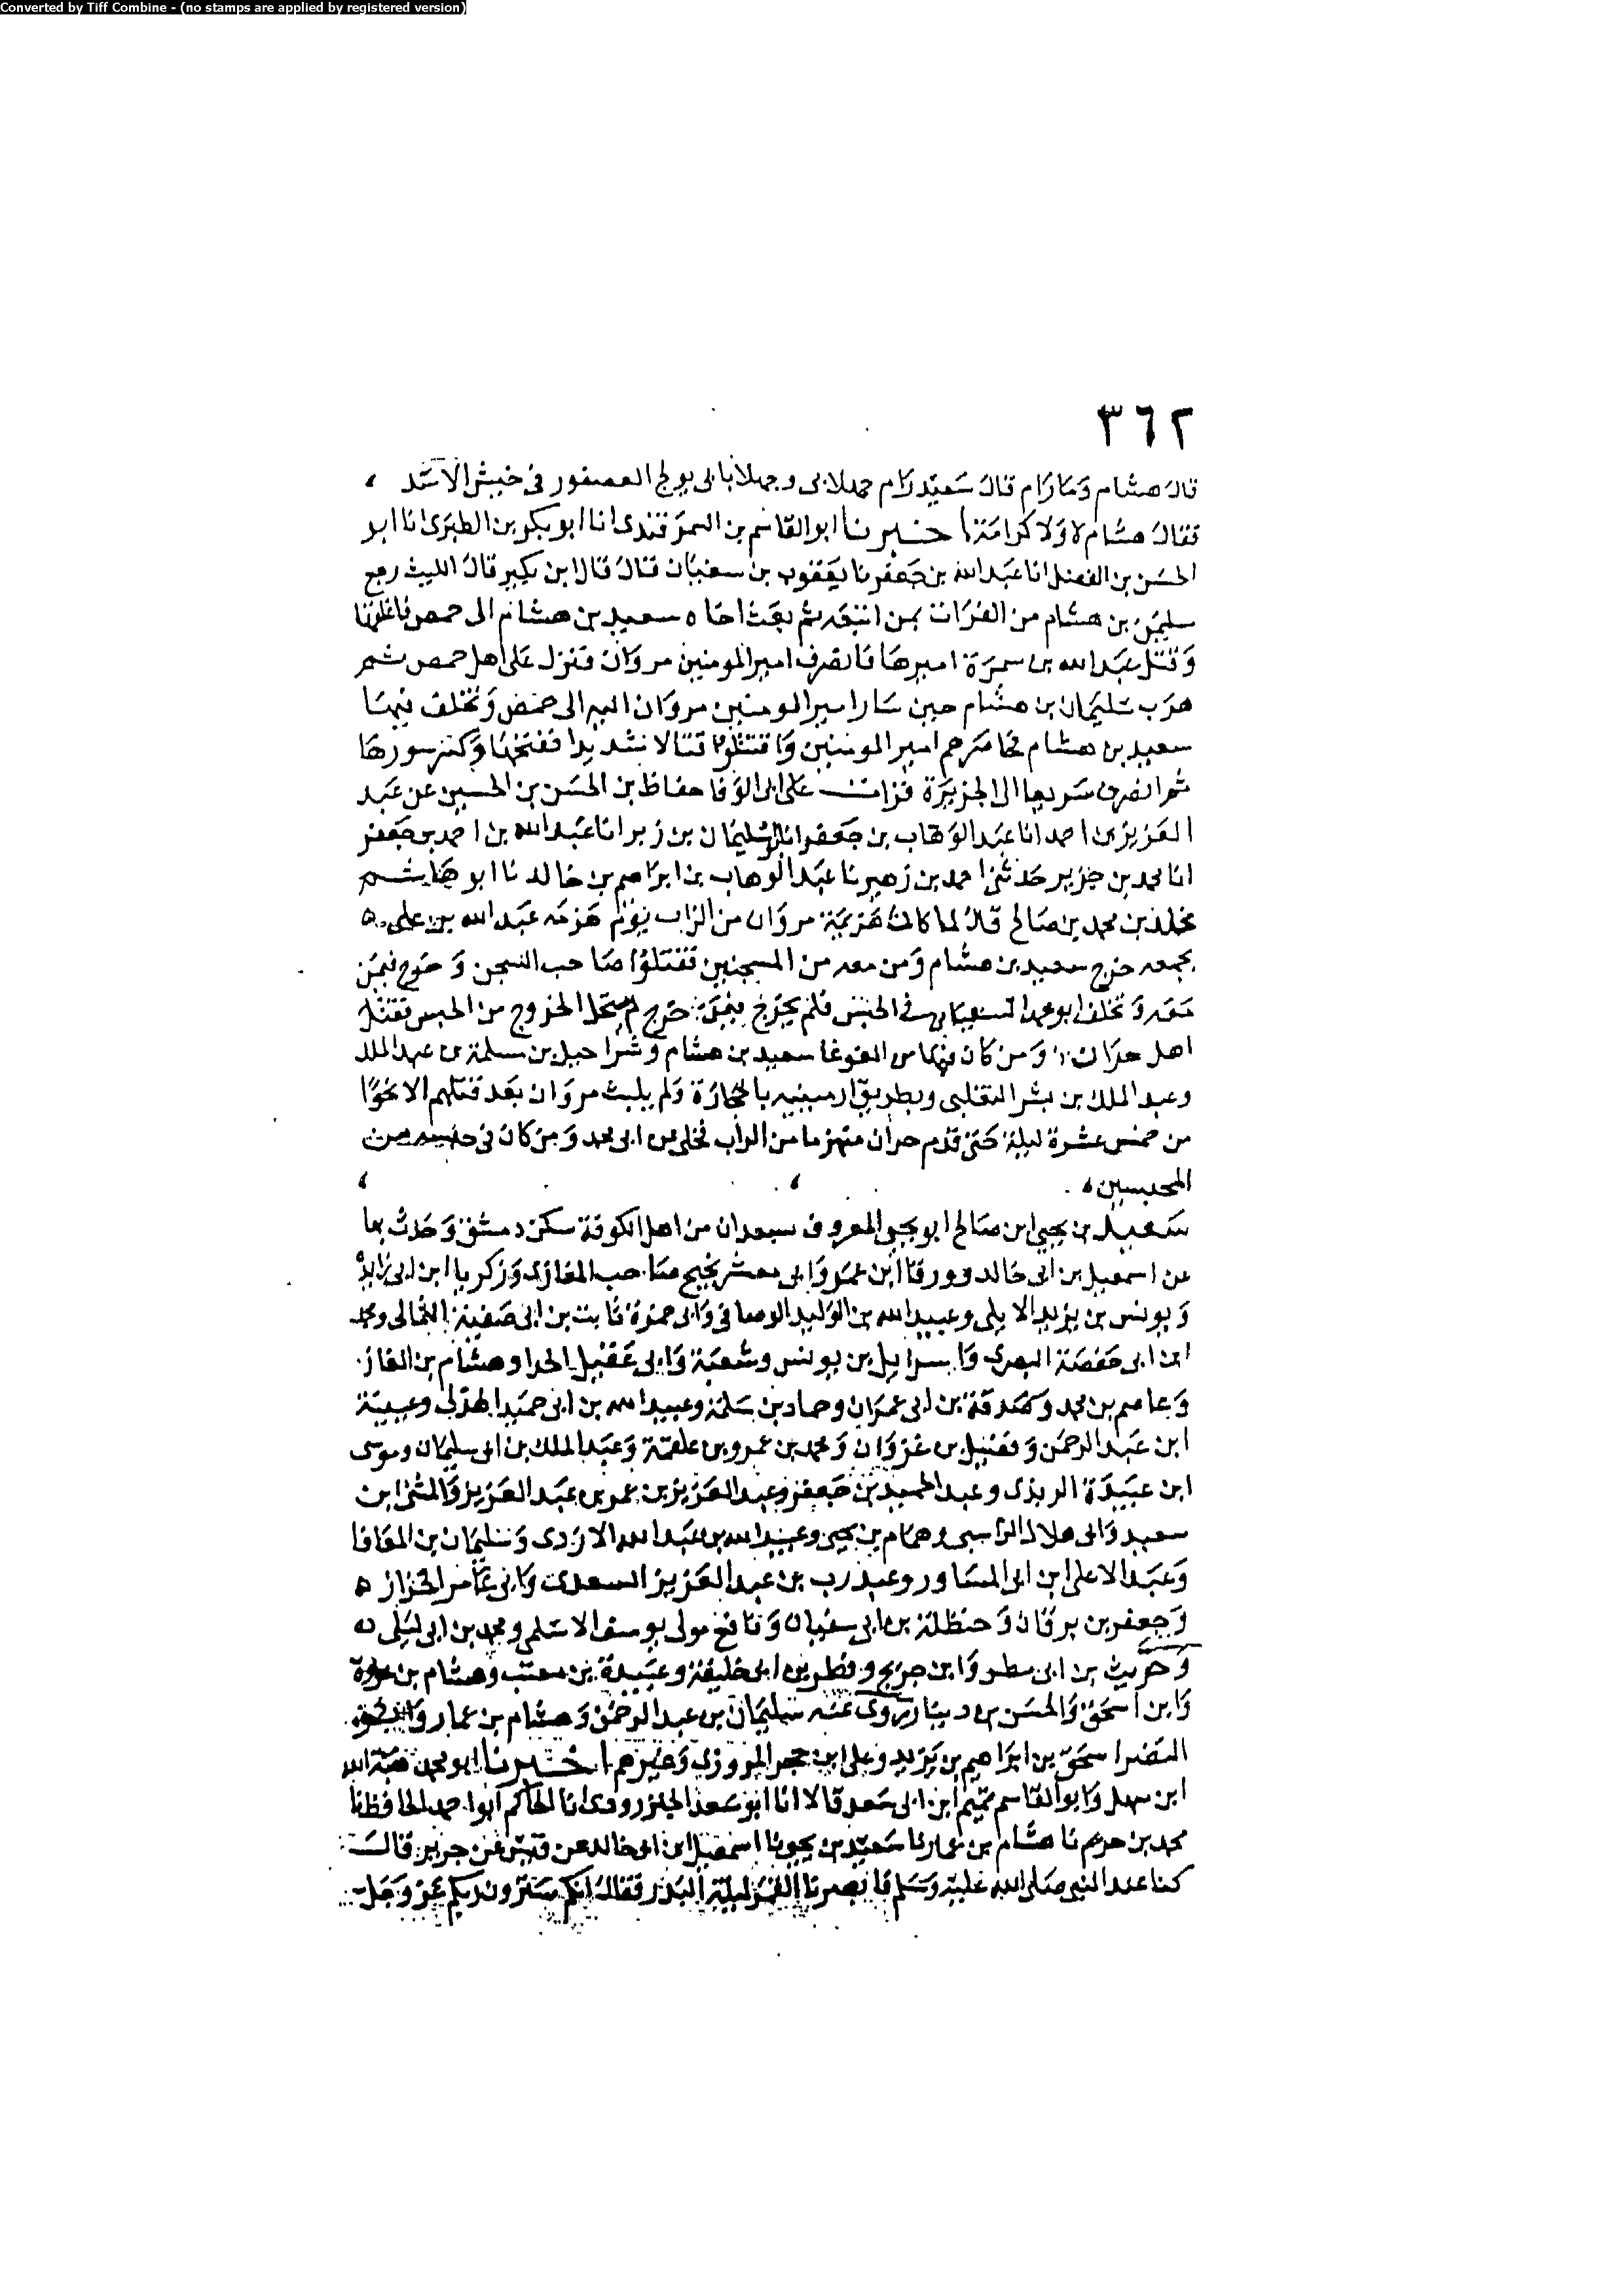 Converted by Tiff Combine - (no stamps are applied by registered version)
٣٦٢
قال هشام وما رام قال سعيد رام جهلا بي وجهلا بابي يولج العصفور في خيش الاسد
فقال هشام لا ولا كرامة اخبرنا ابو القاسم بن السمرقندي انا ابو بكر بن الطبري انا ابو
الحسن بن الفضل انا عبد الله بن جعفر نا يعقوب بن سفيان قال قال ابن بكير قال الليث رجع
سليمن بن هشام من الفرات بمن اتبعه ثم بعث اخاه سعيد بن هشام الى حمص
وقتل عبد الله بن سمرة اميرها فانصرف امير المومنين مروان فنزل على اهل حمص ثم
هرب سليمان بن هشام حين سار امير المومنين مروان اليه الى حمص وتخلف فيها
سعيد بن هشام فحاصرهم امير المومنين واقتتلوا قتالا شديدا ففتحها وكسر سورها
ثم انصرف سريعا الى الجزيرة قرات على ابي الوفا حفاظ بن الحسن بن الحسين عن عبد
العزيز بن احمد انا عبد الوهاب بن جعفر انا ابو سليمان بن زبر انا عبد الله بن احمد بن جعفر
انا محمد بن جرير حدثني احمد بن زهير نا عبد الوهاب بن ابراهيم بن خالد نا ابو هاشم
مخلد بن محمد بن صالح قال لما كانت هزيمة مروان من الزاب يوم هزمه عبد الله بن علي ه
بجمعه خرج سعيد بن هشام ومن معه من المسجنين فقتلوا صاحب السجن وخرج فيمن
معه وتخلف ابو محمد السفياني في الحبس فلم يخرج فيمن خرج لم يستحل الخروج من الحبس فقتل
اهل حران ومن كان فيها من الغوغا سعيد بن هشام وشراحيل بن مسلمة بن عبد الملك
وعبد الملك بن بشر التغلبي وبطريق ارمينيه بالحجارة ولم يلبث مروان بعد قتلهم الا نحوا
من خمس عشرة ليلة حتى قدم حران منهزما من الزاب فخلى عن ابي محمد ومن كان في حبسه من
المحبسين
سعيد بن يحيى ابن صالح ابو يحيى المعروف سعدان من اهل الكوفة سكن دمشق وحدث بها
عن اسمعيل بن ابي خالد وورقا ابن عمر وابي معشر نجيح صاحب المغازي وزكريا ابن ابي زايدة
ويونس بن يزيد الايلي وعبيد الله بن الوليد الوصافي وابي حمزة ثابت بن ابي صفية الثمالي ومحمد
ابن ابي حفصة البصري واسرايل بن يونس وشعبة وابي عقيل الحدا وهشام بن الغاز
وعاصم بن محمد وصدقة بن ابي عمران وحماد بن سلمة وعبيد الله بن ابي حميد الهذلي وعيينة
ابن عبد الرحمن وفضيل بن غزوان ومحمد بن عمرو بن علقمة وعبد الملك بن ابي سليمان وموسى
ابن عبيدة الربذي وعبد الحميد بن جعفر وعبد العزيز بن عمر بن عبد العزيز والمثنى ابن
سعيد وابي هلال الراسبي وهمام بن يحيى وعبيد الله بن عبد الله الازدي وسليمان بن المغافا
وعبد الاعلى ابن ابي المساور وعبد رب بن عبد العزيز السعدي وابي عامر الخزاز ه
وجعفر بن برقان وحنظلة بن ابي سفيان ونافع مولى يوسف الاسلمي ومحمد بن ابي ليلى
وحريث بن ابي مطر وابن جريج وفطر بن ابي خليفة وعبيدة بن معتب وهشام بن عروة
وابن اسحق والحسن بن دينار روى عنه سليمان بن عبد الرحمن وهشام بن عمار
النضر اسحق بن ابراهيم بن يزيد وعلي ابن حجر المروزي وغيرهم اخبرنا ابو محمد هبة الله
ابن سهل وابو القاسم تميم ابن ابي سعد قالا انا ابو سعد الجنزرودي انا الحاكم ابو احمد الحافظ نا
محمد بن خريم نا هشام بن عمار نا سعيد بن يحيى نا اسمعيل ابن ابي خالد عن قيس عن جرير قال
كنا عند النبي صلى الله عليه وسلم فابصرنا القمر ليلة البدر فقال انكم سترون ربكم عز وجل